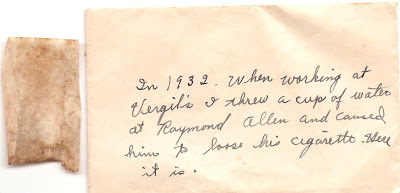 In 1932. When working at
Vergil's I threw a cup of water
at Raymond Allen and caused
him to loose his cigarette. Here
it is.